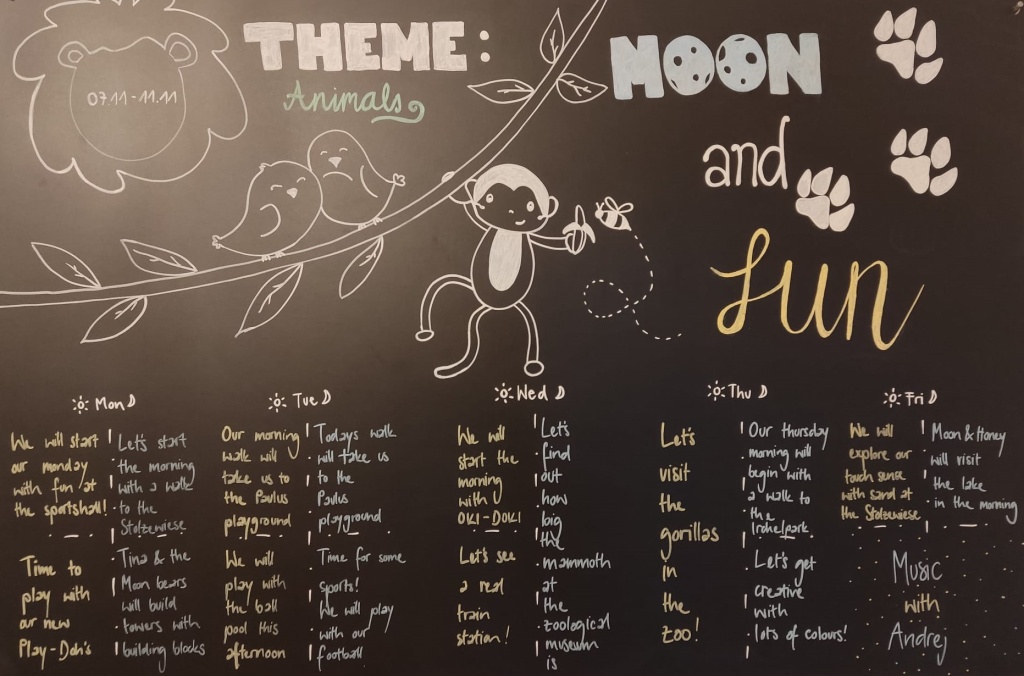 07.11-11.11
THEME:
Animals
MOON
and
SUN
Mon
We will start
our monday
with fun at
the sportshall!
Time to
play with
our new
Play-Doh's
Let's start
the morning
with a walk
to the
Stolzewiese
Tina & the
Moon bears
will build
towers with
building blocks
Tue
Our morning
walk will
take us to
the Paulus
playground
We will
play with
the ball
pool this
afternoon
Todays walk
will take us
to the
Paulus
playground
Time for some
sports!
We will play
with our
football
Wed
We will
start the
morning
with
OKI-DOKI
Let's see
a real
train
station!
Let's
find
out
how
big
the
mammoth
at
the
zoological
museum
is
Thu
Let's
visit
the
gorillas
in
the
zoo!
Our thursday
morning will
begin with
a walk to
the
Irchelpark
Let's get
creative
with
lots of colours!
Fri
We will
explore our
touch sense
with sand at
the Stolzewiese
Moon & Honey
will visit
the lake
in the morning
Music
with
Andrej